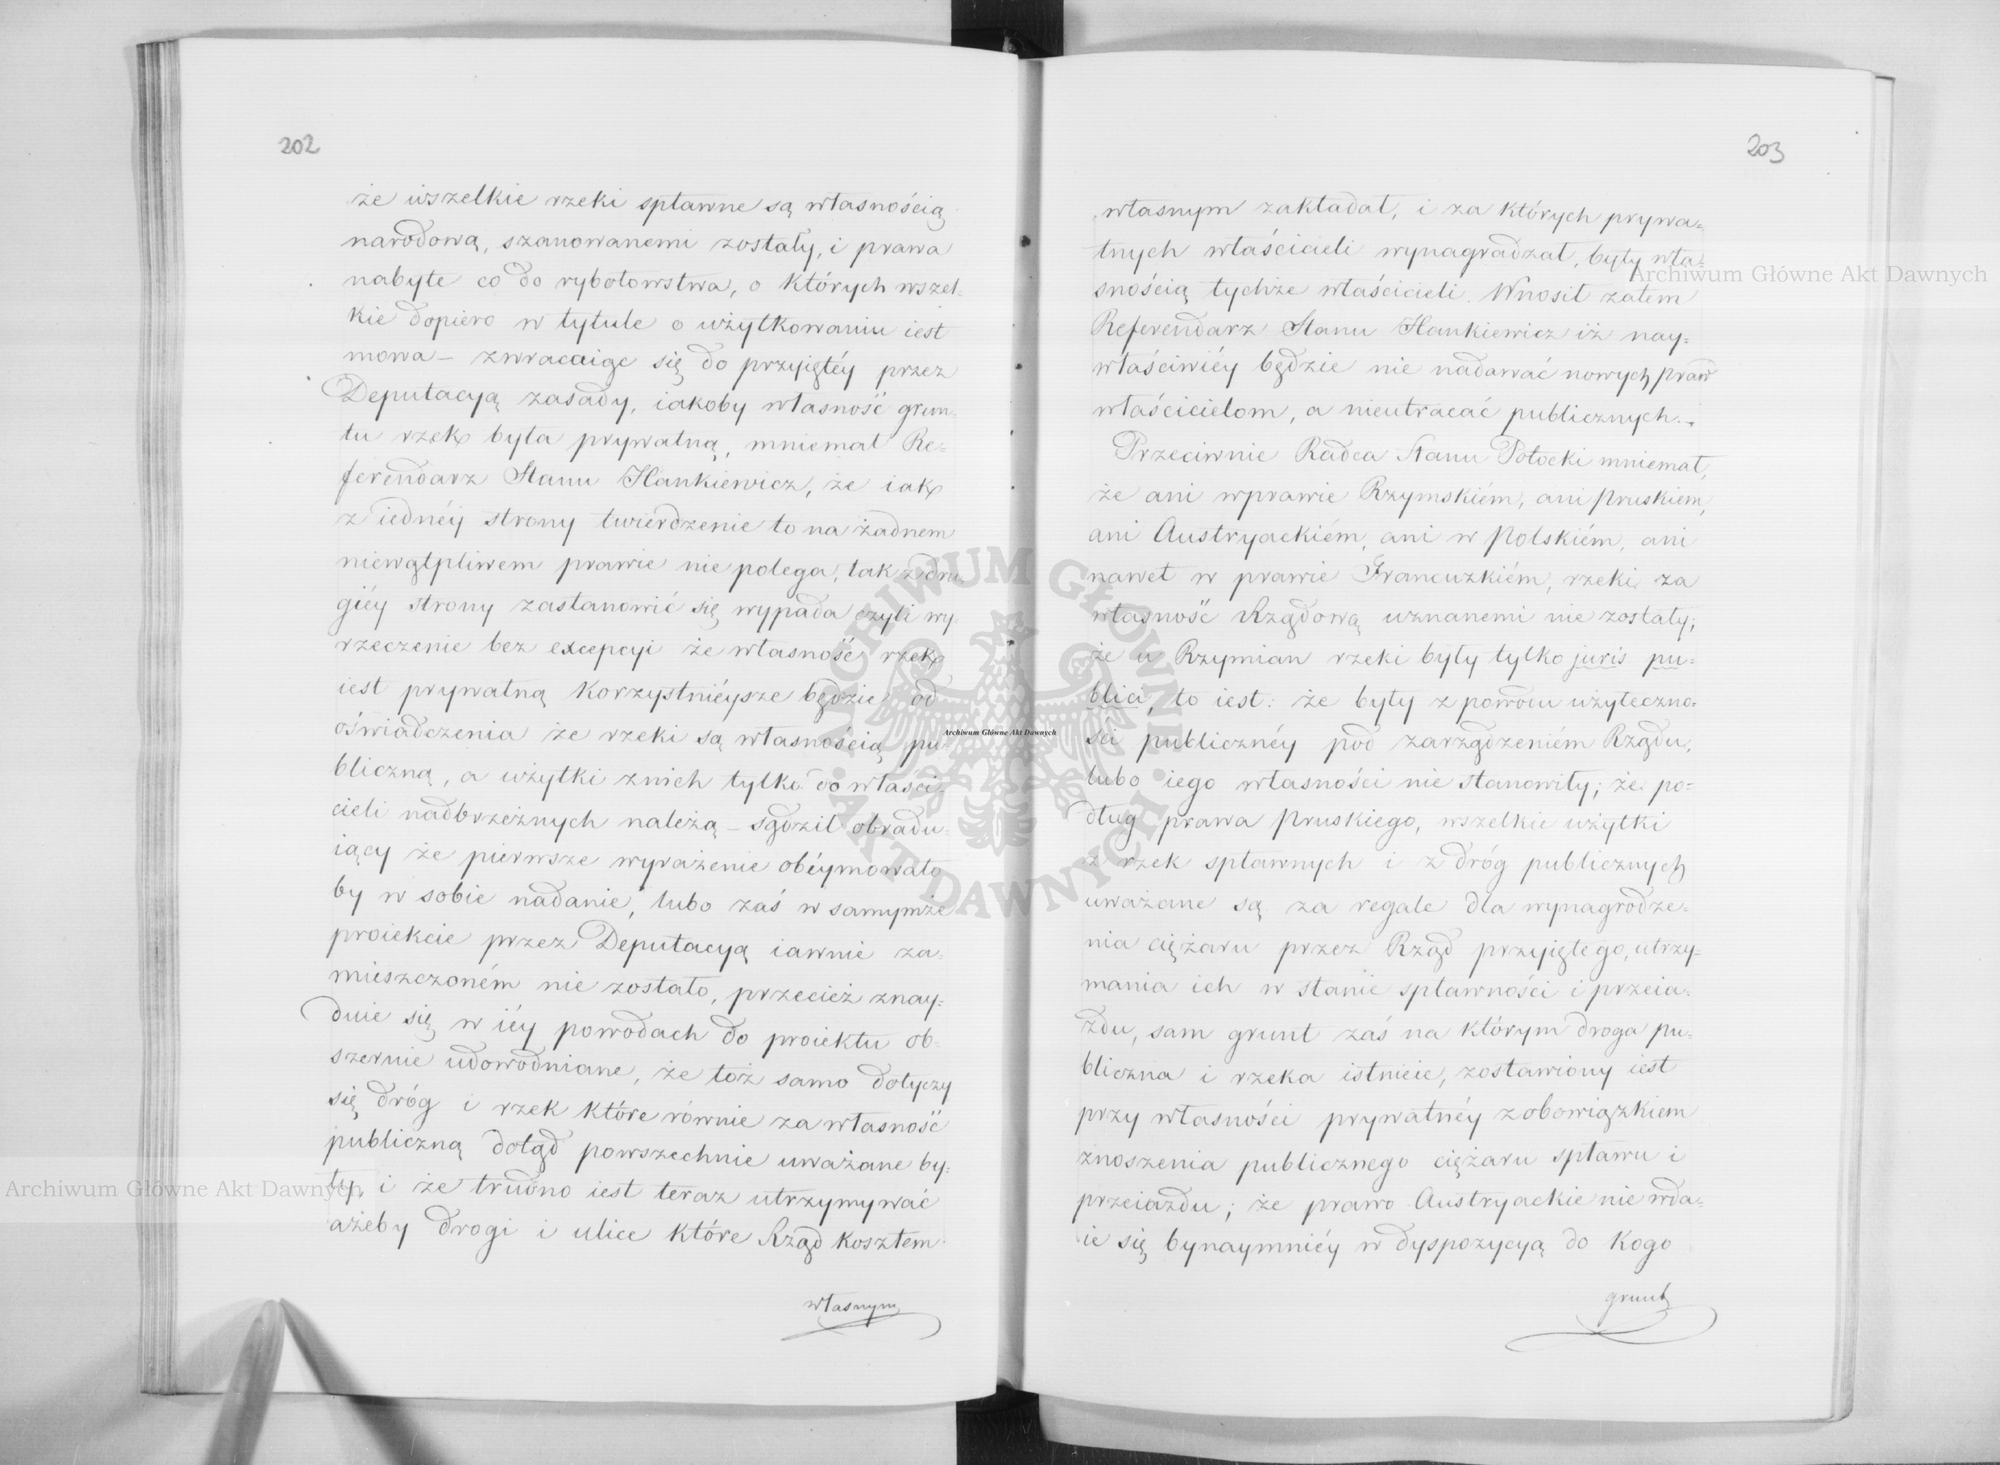 202
że wszelkie rzeki spławne są własnością
narodową, szanowanemi zostały, i prawa
nabyte co do rybołowstwa, o których wszel-
kie dopiero w tytule o użytkowaniu iest
mowa – zwracaiąc się do przyiętéy przez
Deputacyą zasady, iakoby własność grun-
tu rzek była prywatną, mniemał Re-
ferendarz Stanu Hankiewicz, że iak
z iednéy strony twierdzenie to na żadnem
niewątpliwem prawie nie polega, tak z dru-
giéy strony zastanowić się wypada czyli wy-
rzeczenie bez excepcyi że własność rzek
iest prywatną korzystniéysze będzie od
oświadczenia że rzeki są własnością pu-
bliczną, a użytki z nich tylko do właści-
cieli nadbrzeżnych należą – sądził obradu-
iący że pierwsze wyrażenie obéymowało
by w sobie nadanie, lubo zaś w samymże
proiekcie przez Deputacyą iawnie za-
mieszczoném nie zostało, przecież znay-
duie się w iéy powodach do proiektu ob-
szernie udowodniane, że toż samo dotyczy
się dróg i rzek które równie za własność
publiczną dotąd powszechnie uważane by-
ły, i że trudno iest teraz utrzymywać
ażeby drogi i ulice które Rząd kosztem
własnym
203
własnym zakładał, i za których prywa-
tnych właścicieli wynagradzał, były wła-
snością tychże właścicieli. Wnosił zatem
Referendarz Stanu Hankiewicz iż nay-
właściwiéy będzie nie nadawać nowych praw
właścicielom, a nieutracać publicznych.
Przeciwnie Radca Stanu Potocki mniemał,
że ani w prawie Rzymskiém, ani Pruskiem,
ani Austryackiém, ani w Polskiém, ani
nawet w prawie Francuzkiém, rzeki za
własność Rządową uznanemi nie zostały;
że u Rzymian rzeki były tylko juris pu-
blici, to iest: że były z powodu użyteczno-
ści publicznéy pod zarządzeniém Rządu,
lubo iego własności nie stanowiły; że po-
dług prawa Pruskiego, wszelkie użytki
z rzek spławnych i z dróg publicznych
uważane są za regale dla wynagrodze-
nia ciężaru przez Rząd przyiętego, utrzy-
mania ich w stanie spławności i przeia-
zdu, sam grunt zaś na którym droga pu-
bliczna i rzeka istnieie, zostawiony iest
przy własności prywatnéy z obowiązkiem
znoszenia publicznego ciężaru spławu i
przeiazdu; że prawo Austryackie nie wda-
ie się bynaymniéy w dyspozycyą do kogo
grunt
Archiwum Główne Akt Dawnych
Archiwum Główne Akt Dawnych
Archiwum Główne Akt Dawnych
ARCHIWUM GŁÓWNE AKT DAWNYCH